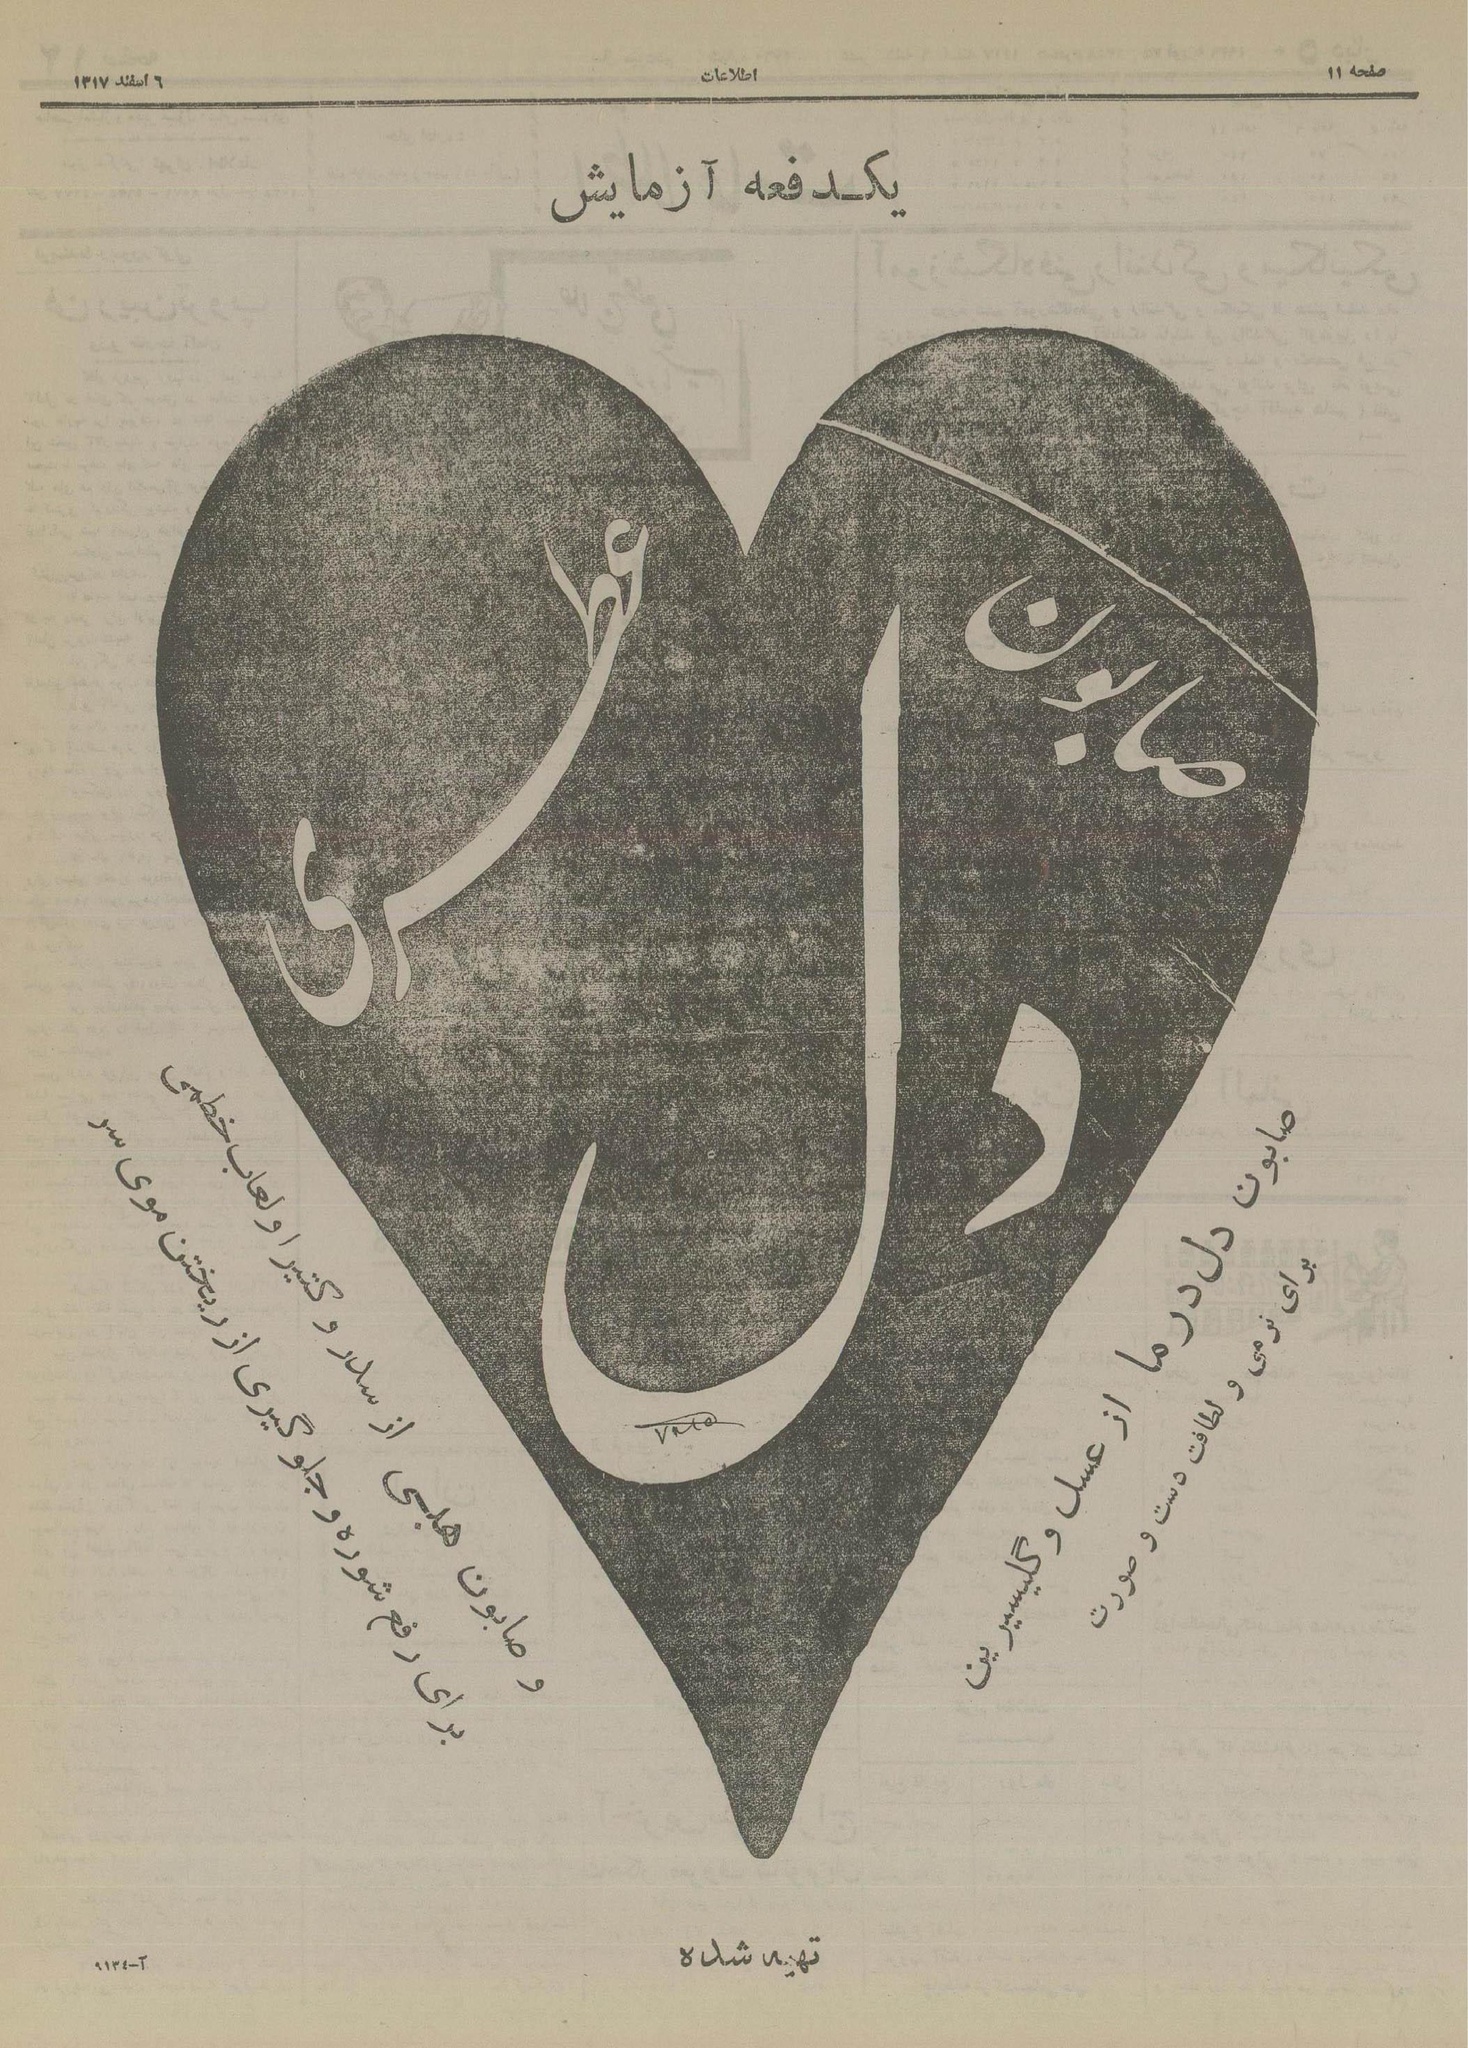 صفحه ۱۱
اطلاعات
۶ اسفند ۱۳۱۷
یکدفعه آزمایش
صابون
دل
عطری
صابون دل درما از عسل و گلیسیرین
برای نرمی و لطافت دست و صورت
و صابون هلبی از سدر و کتیرا و لعاب خطمی
برای رفع شوره و جلوگیری از ریختن موی سر
تهیه شده
آ-۹۱۳٤